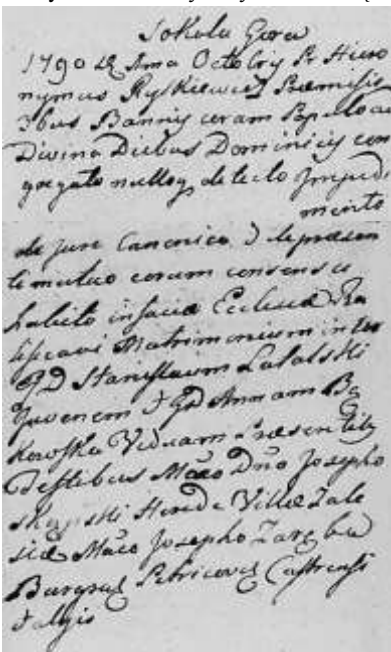 Sokola Gora
1790 d. 2 Ama Octobris Pr Hiero
nymus Ryskiewicz Præmissis
3bus Bannis coram Populo ad
Divina Diebus Dominicis con
gregato nulloq detecto Impedi
mento
de jure Canonico & de præsen
te mutuo eorum consensu
habito in facie Ecclesiæ Ra
tificavi Matrimonium inter
GD Stanislaum Lalalski
Juvenem & GD Annam Bę
kowska Viduam Præsentibus
Testibus Mæo Dno Josepho
Hærede Villæ Zale
siæ Mæo Josepho Zarębą
Burgrab Petricovi Castrensi
& aliis